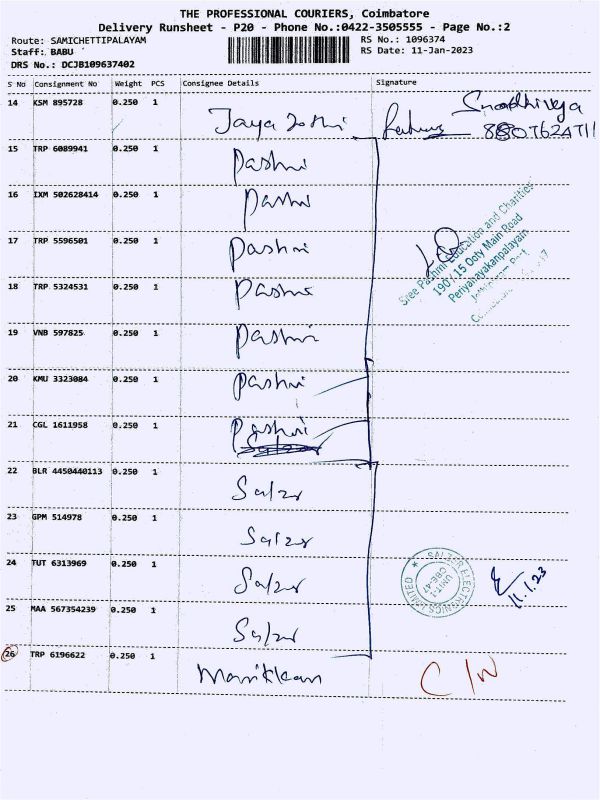 THE PROFESSIONAL COURIERS, Coimbatore
Delivery Runsheet - P20 - Phone No.:0422-3505555 - Page No.:2
Route: SAMICHETTIPALAYAM RS No.: 1096374
Staff: BABU RS Date: 11-Jan-2023
DRS No.: DCJB109637402
S No Consignment No Weight PCS Consignee Details Signature
14 KSM 895728 0.250 1 Jaya Joshi
15 TRP 6089941 0.250 1 Pashmi
16 IXM 502628414 0.250 1 Pashmi
17 TRP 5596501 0.250 1 Pashmi
Sree Pashmi Education and Charities
190 / 15 Ooty Main Road
Periyanayakanpalayam
18 TRP 5324531 0.250 1 Pashmi
19 VNB 597825 0.250 1 Pashmi
20 KMU 3323084 0.250 1 Pashmi
21 CGL 1611958 0.250 1 Pashmi
22 BLR 4450440113 0.250 1 Salzer
23 GPM 514978 0.250 1 Salzer
24 TUT 6313969 0.250 1 Salzer
SALZER ELECTRONICS LIMITED
UNIT-1
CBE-47
11.1.23
25 MAA 567354239 0.250 1 Salzer
26 TRP 6196622 0.250 1 Manikkam C/N